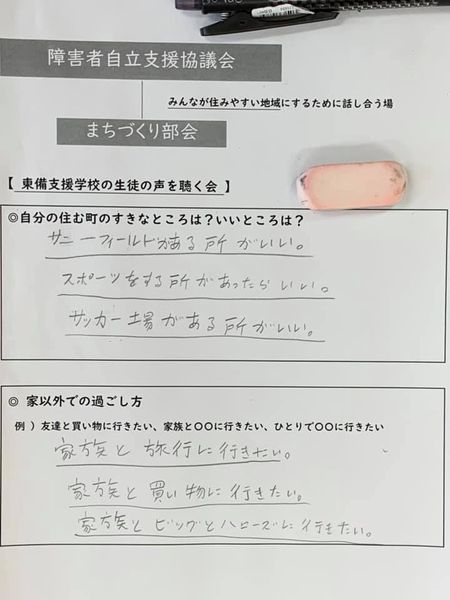 障害者自立支援協議会
みんなが住みやすい地域にするために話し合う場
まちづくり部会
【 東備支援学校の生徒の声を聴く会 】
◎自分の住む町のすきなところは？いいところは？
サニーフィールドがある所がいい。
スポーツをする所があったらいい。
サッカー場がある所がいい。
◎ 家以外での過ごし方
例 ）友達と買い物に行きたい、家族と〇〇に行きたい、ひとりで〇〇に行きたい
家族と旅行に行きたい。
家族と買い物に行きたい。
家族とビッグとハローズに行きたい。